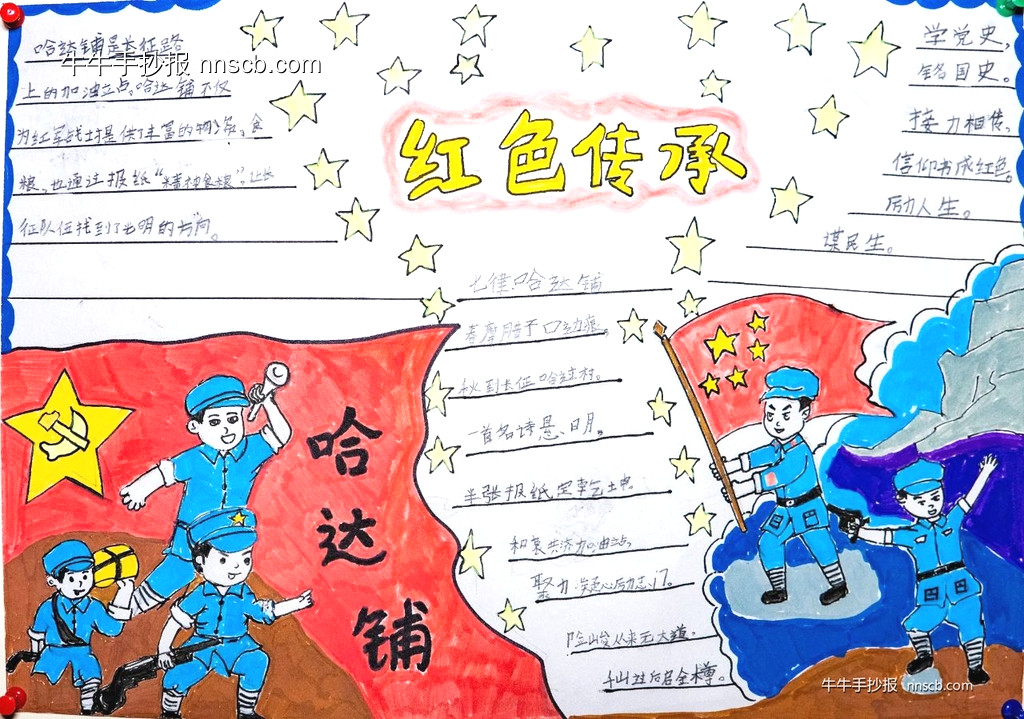 红色传承
哈达铺是长征路
牛牛手抄报 nnscb.com
上的加油立点。哈达铺不仅
为红军战士提供了丰富的物资、食
粮,也通过报纸“精神食粮”,让长
征队伍找到了光明的方向。
学党史,
铭国史。
接力相传,
信仰书成红色。
励人生。
谋民生。
七律·哈达铺
秋到长征哈达村。
一首名诗悬日月,
半张报纸定乾坤。
聚力凝心励志门。
险峻从来无大道,
哈
达
铺
牛牛手抄报 nnscb.com